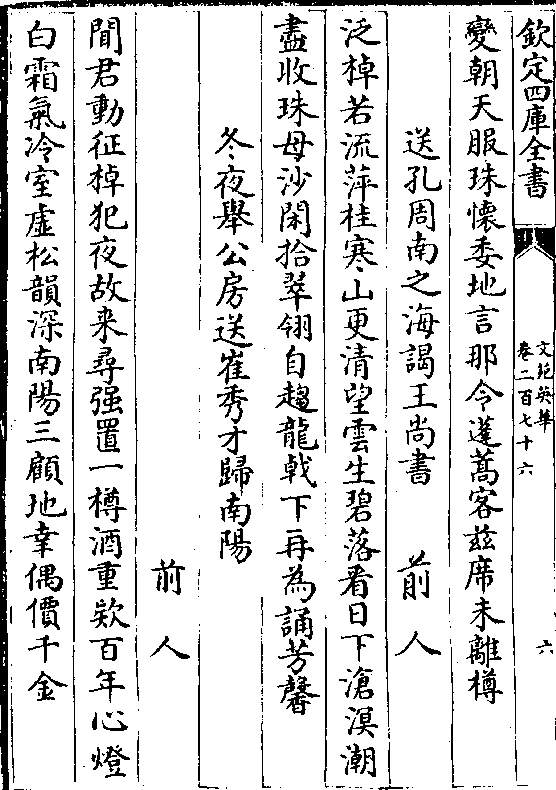 欽定四庫全書
文苑英華
卷二百七十六
六
變朝天服珠懷委地言那令蓬蒿客茲席未離樽
送孔周南之海謁王尚書
前人
泛棹若流萍桂寒山更清望雲生碧落看日下滄溟潮
盡收珠母沙閑拾翠翎自趨龍戟下再為誦芳馨
冬夜舉公房送崔秀才歸南陽
前人
聞君動征棹犯夜故来尋强置一樽酒重欵百年心燈
白霜氣冷室虛松韻深南陽三顧地幸偶價千金